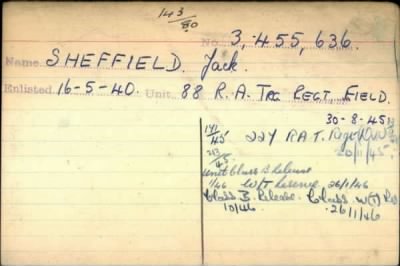 143
80
No. 3,455,636.
Name SHEFFIELD. Jack.
Enlisted 16-5-40. Unit 88 R.A. TRG REGT. FIELD.
30-8-45
141
45
224 R.A.T. Regt
213
45
20/11/45.
Unit Class B Release
1/46 W/T Reserve 26/1/46
Class B. Release. Class W(T) Res
10/46 26/1/46